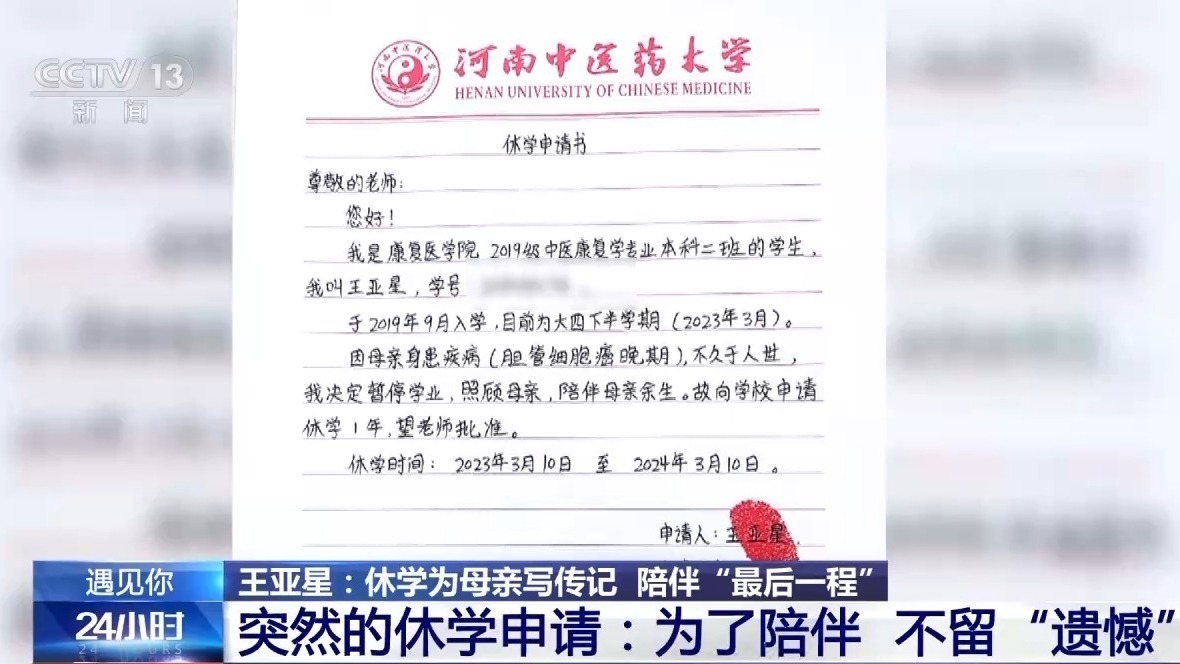 CCTV 13
新闻
河南中医药大学
HENAN UNIVERSITY OF CHINESE MEDICINE
休学申请书
尊敬的老师:
您好!
我是康复医学院 2019级中医康复学专业本科二班的学生,
我叫王亚星,学号
于2019年9月入学,目前为大四下半学期(2023年3月)。
因母亲身患疾病(胆管细胞癌晚期),不久于人世,
我决定暂停学业,照顾母亲,陪伴母亲余生。故向学校申请
休学1年,望老师批准。
休学时间: 2023年3月10日 至 2024年3月10日。
申请人:王亚星
遇见你
王亚星:休学为母亲写传记 陪伴“最后一程”
24小时
24 HOURS
突然的休学申请:为了陪伴 不留“遗憾”